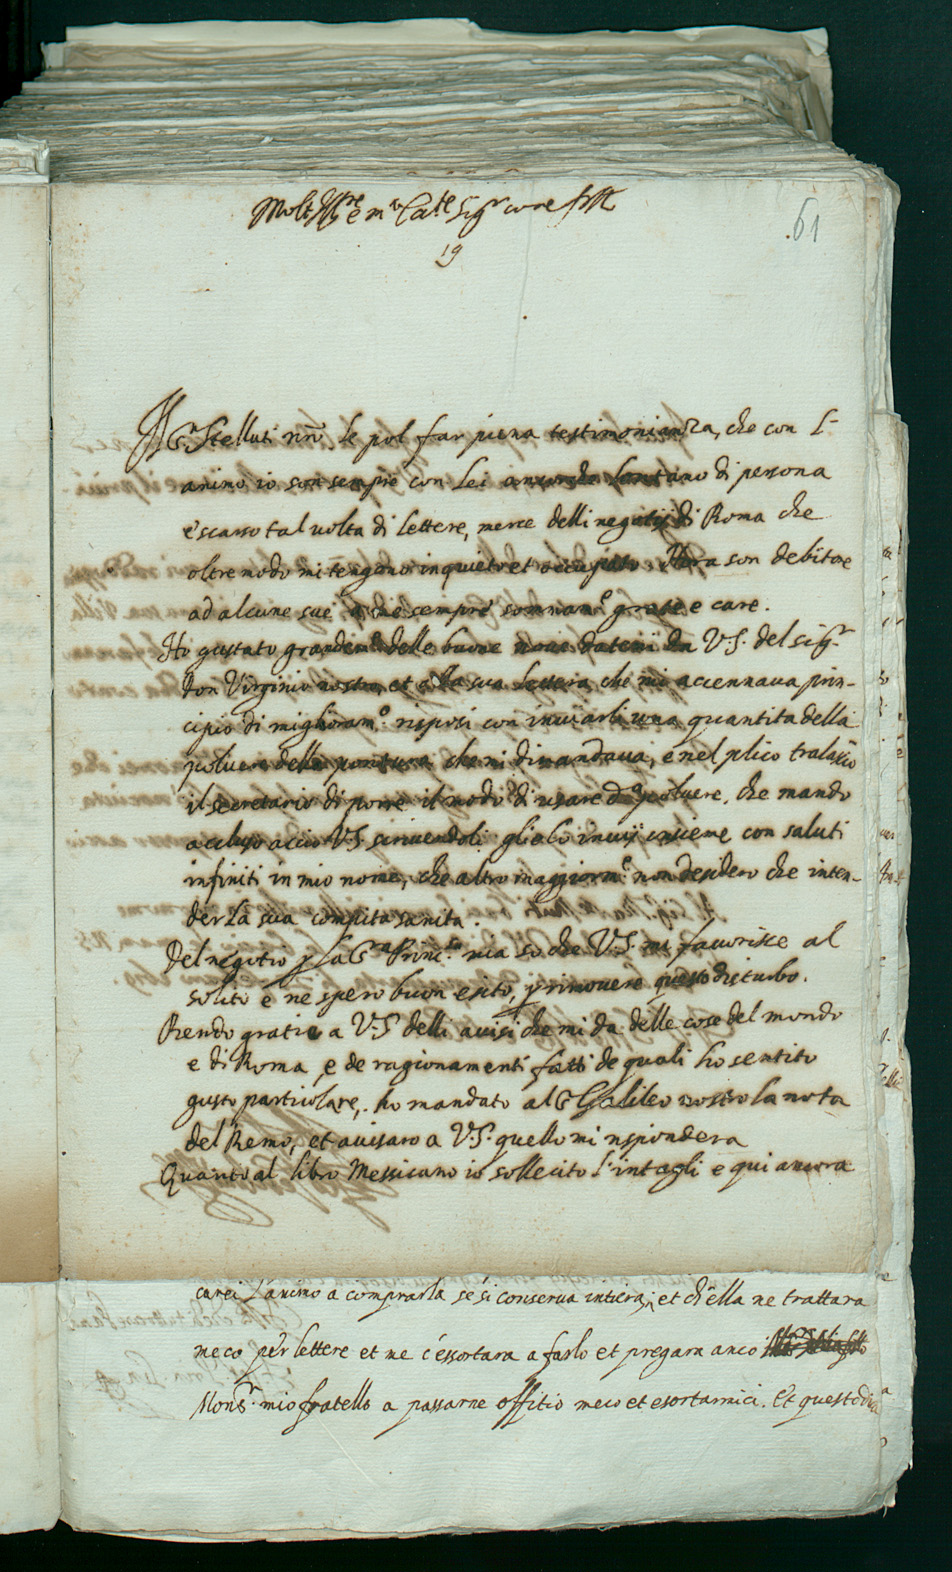 Molt Ill.re e m.to Ecc.te Sig.r come fr.llo
61
19
Il S.r Stelluti nr̃o le pol far piena testimonianza, che con l'
animo io son sempre con Lei ancorche lontano di persona
e scarso tal volta di lettere, merce delli negotij di Roma che
oltremodo mi tengono inquieto et occupato. Hora son debitore
ad alcune sue a me sempre sommam.e grate e care.
Ho gustato grandem.e delle buone nove datemi da V.S. del Sig.r
Don Virginio nostro, et alla sua lettera, che mi accennava prin-
cipio di miglioram.o risposi con inviarli una quantita della
polvere della che mi dimandava, e nel plico tralasciò
il secretario di porre il modo di usare d.a polvere, che mando
accluso acciò V.S. scrivendoli glielo invij insieme con saluti
infiniti in mio nome, che altro maggiorm.e non desidero che inten-
der la sua compita sanita.
Del negotio p la S.ra Princ.sa mia so che V.S. mi favorisce al
solito e ne spero buon esito, p rimovere questo disturbo.
Rendo gratie a V.S. delli avisi che mi da delle cose del mondo
e di Roma e de ragionamenti fatti de quali ho sentito
gusto particolare, ho mandato al S. Galileo nostro la nota
del Remo, et avisaro a V.S. quello mi rispondera
Quanto al libro Messicano io sollecito l'intagli e qui ancora
carei l'animo a comprarla se si conserva intiera, et ch'ella ne trattara
meco per lettere et me c'essortara a farlo et pregara anco
Mons.r mio fratello a passarne offitio meco et esortarmici. Et questo